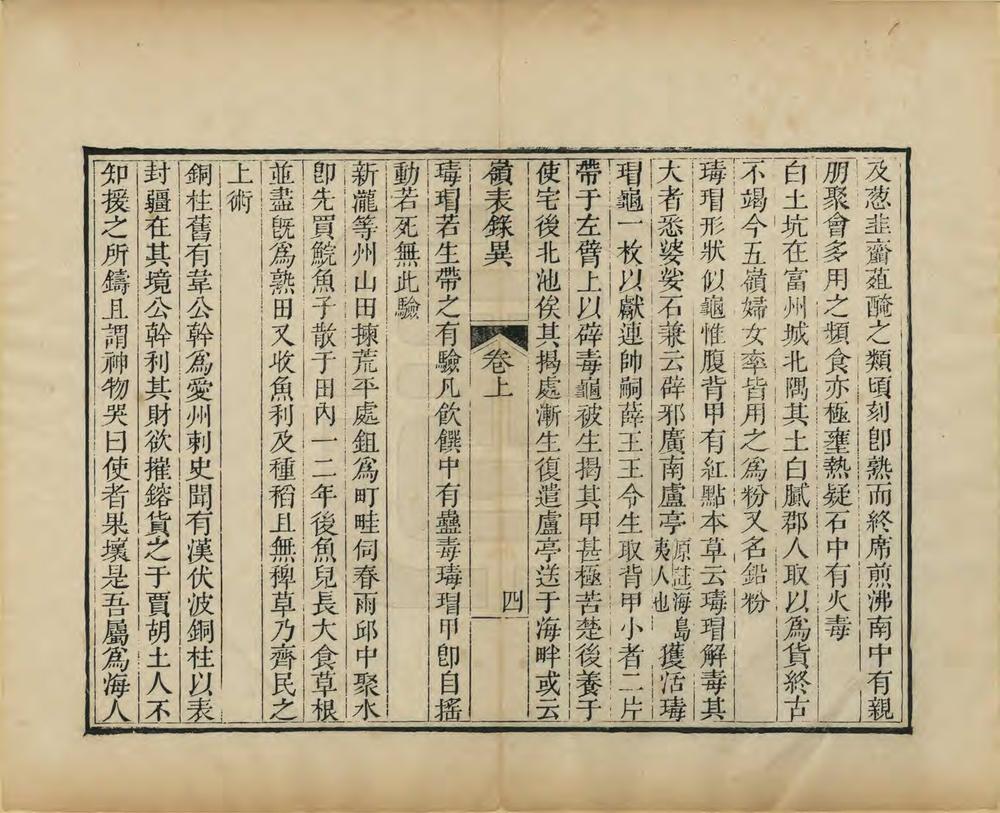 及葱韭齏葅醃之類頃刻卽熟而終席煎沸南中有親
朋聚會多用之頻食亦極壅熱疑石中有火毒
白土坑在富州城北隅其土白膩郡人取以爲貨終古
不竭今五嶺婦女率皆用之爲粉又名鉛粉
瑇瑁形狀似龜惟腹背甲有紅點本草云瑇瑁解毒其
大者悉婆娑石兼云辟邪廣南盧亭原註海島夷人也獲活瑇
瑁龜一枚以獻連帥嗣薛王王令生取背甲小者二片
帶于左臂上以辟毒龜被生揭其甲甚極苦楚後養于
使宅後北池俟其揭處漸生復遣盧亭送于海畔或云
嶺表錄異 卷上 四
瑇瑁若生帶之有驗凡飲饌中有蠱毒瑇瑁甲卽自搖
動若死無此驗
新瀧等州山田揀荒平處鉏爲町畦伺春雨邱中聚水
卽先買鯇魚子散于田內一二年後魚兒長大食草根
並盡旣爲熟田又收魚利及種稻且無稗草乃齊民之
上術
銅柱舊有韋公幹爲愛州刺史聞有漢伏波銅柱以表
封疆在其境公幹利其財欲摧鎔貨之于賈胡土人不
知援之所鑄且謂神物哭曰使者果壞是吾屬爲海人